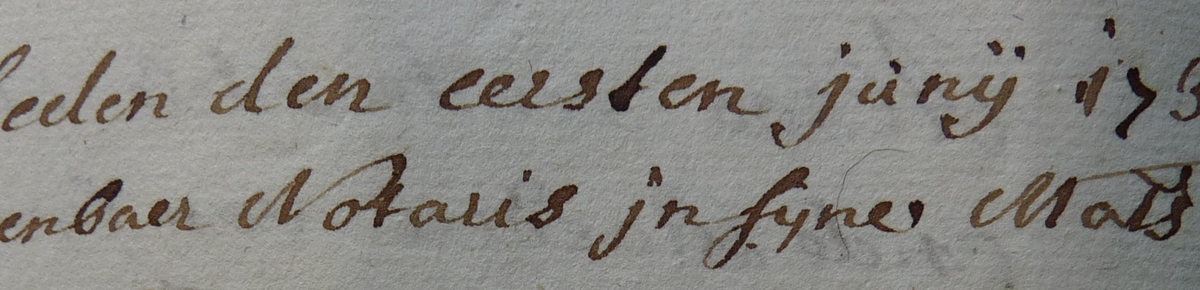 eden den eersten junij 173
enbaer Notaris jn syne Mats